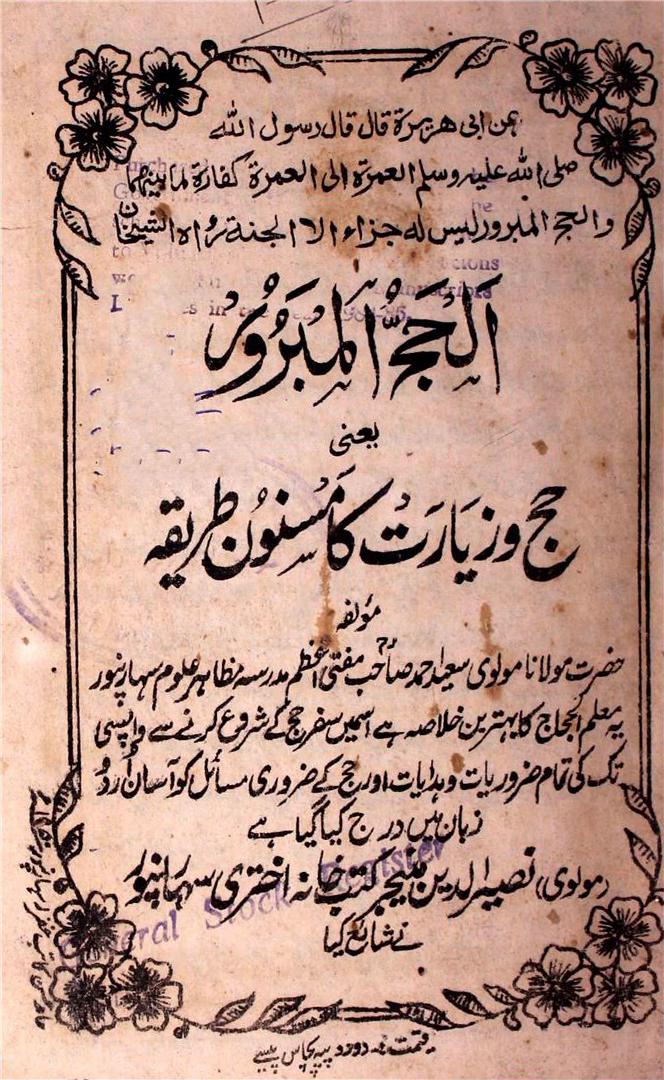 عن ابی هریرة قال قال رسول الله
صلی الله علیه وسلم العمرة الی العمرة کفارة لما بینهما
والحج المبرور لیس له جزاء الا الجنة رواه الشیخان
اَلحَجُّ المَبرُور
یعنی
حج و زیارت کا مسنون طریقہ
مؤلفہ
حضرت مولانا مولوی سعید احمد صاحب مفتی اعظم مدرسہ مظاہر علوم سہارنپور
یہ معلم الحجاج کا بہترین خلاصہ ہے اسمیں سفر حج کے شروع کرنے سے واپسی
تک کی تمام ضروریات و ہدایات اور حج کے ضروری مسائل کو آسان اردو
زبان میں درج کیا گیا ہے
(مولوی) نصیر الدین منیجر کتب خانہ اختری سہارنپور
نے شائع کیا
General Stock Register
قیمت دو روپیہ پچاس پیسے